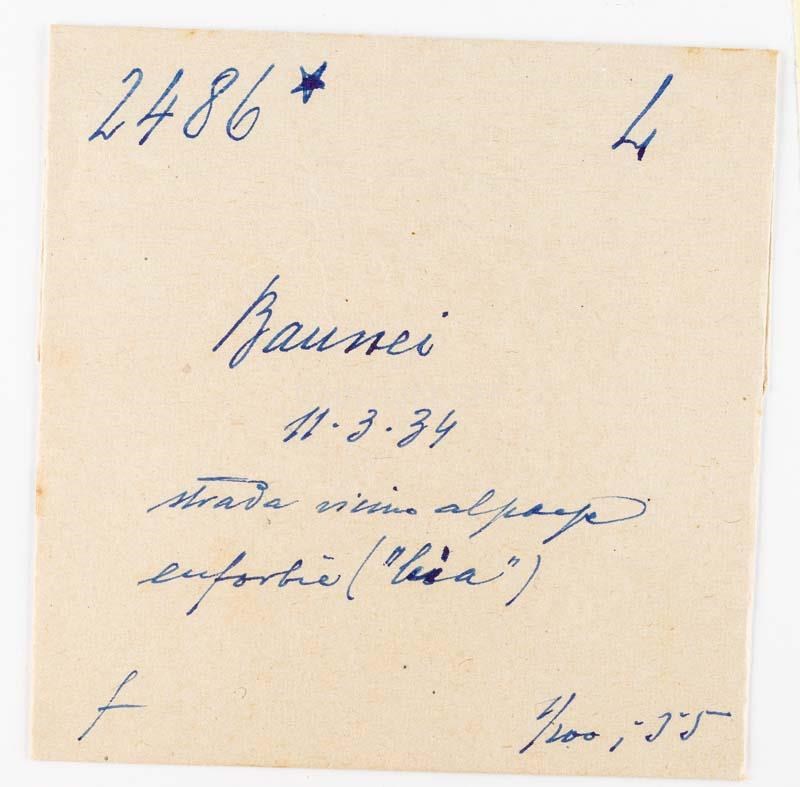 2486* 4
Baunei
11.3.34
strada vicino al paese
euforbie ("lua")
f
1/200 ; 5·5